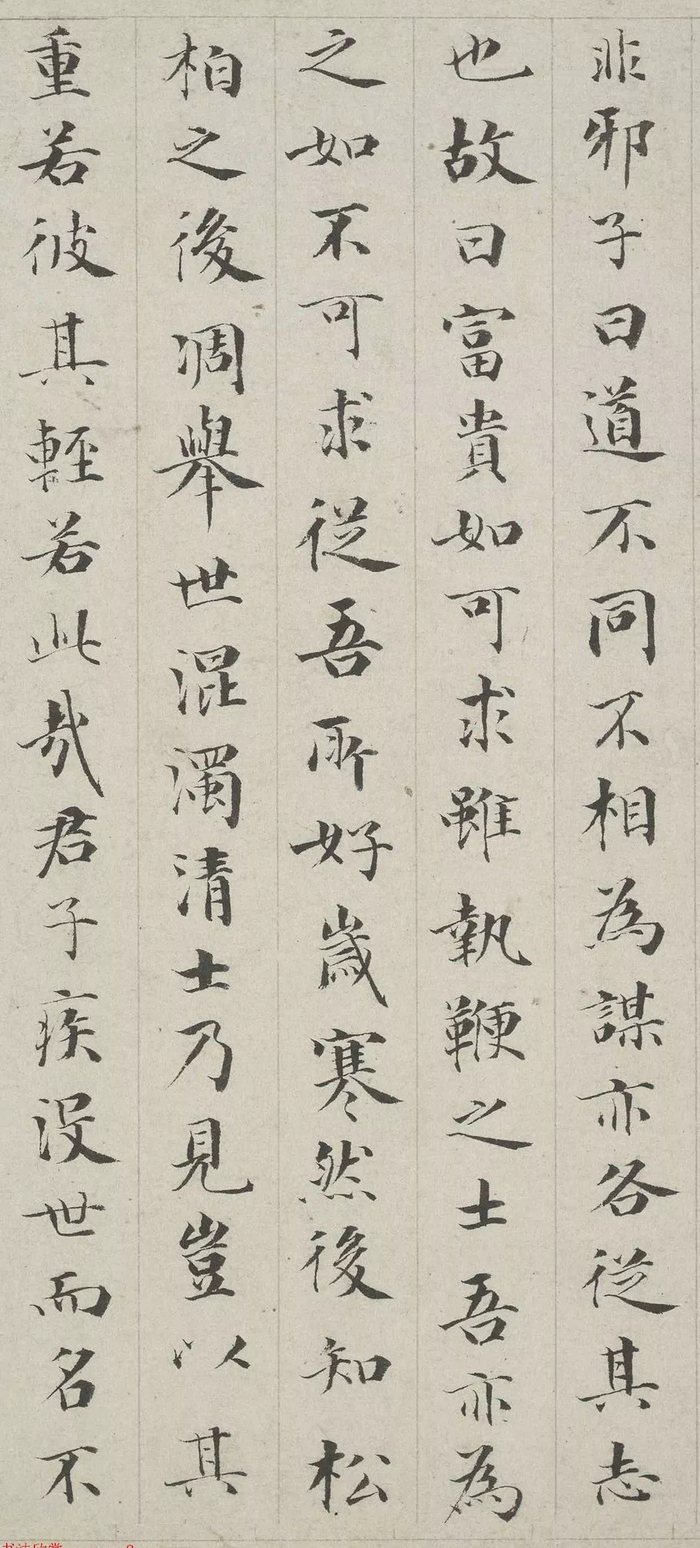 非邪子曰道不同不相為謀亦各從其志
也故曰富貴如可求雖執鞭之士吾亦為
之如不可求從吾所好歲寒然後知松
柏之後凋舉世混濁清士乃見豈以其
重若彼其輕若此哉君子疾没世而名不